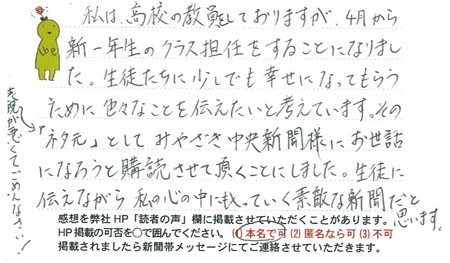 私は、高校の教員しておりますが、4月から
新一年生のクラス担任をすることになりまし
た。生徒たちに少しでも幸せになってもらう
ために色々なことを伝えたいと考えています。その
"ネタ元"としてみやざき中央新聞様にお世話
になろうと購読させて頂くことにしました。生徒に
伝えながら私の心の中にも入っていく素敵な新聞だと
思います。
表現が悪くてごめんなさい!
感想を弊社HP「読者の声」欄に掲載させていただくことがあります。
HP掲載の可否を○で囲んでください。(1)本名で可 (2)匿名なら可 (3)不可
掲載されましたら新聞帯メッセージにてご連絡させていただきます。